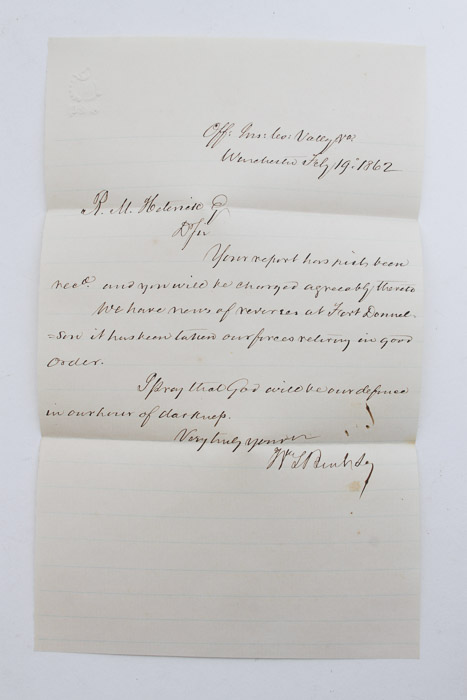 Off: Ins: Co: Valley Va.
Winchester Feby 19: 1862
R. M. Hederick Eq
D/Sir
Your report has just been
recd. and you will be charged agreeably thereto
We have news of reverses at Fort Donnel-
=son it has been taken our forces retiring in good
order.
I pray that God will be our defence
in our hour of darkness.
Very truly yours
Wm L